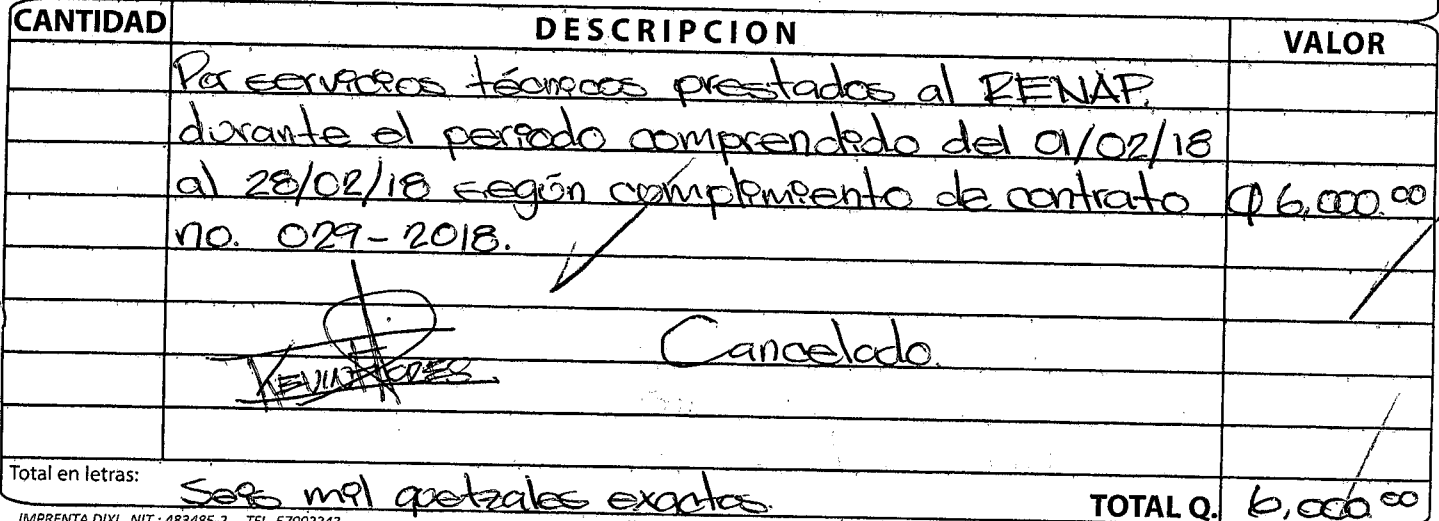 CANTIDAD DESCRIPCION VALOR
Por servicios técnicos prestados al RENAP,
durante el periodo comprendido del 01/02/18
al 28/02/18 según cumplimiento de contrato Q 6,000.00
no. 029-2018.
Cancelado.
KEVIN
Total en letras: Seis mil quetzales exactos. TOTAL Q. 6,000.00
IMPRENTA DIXI NIT.: 483485-2 TEL. 57002242